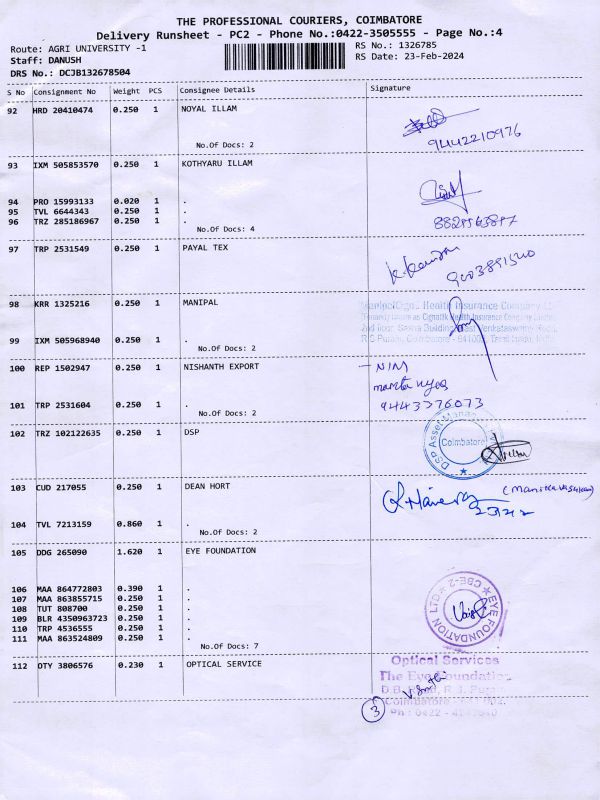 THE PROFESSIONAL COURIERS, COIMBATORE
Delivery Runsheet - PC2 - Phone No.:0422-3505555 - Page No.:4
Route: AGRI UNIVERSITY -1 RS No.: 1326785
Staff: DANUSH RS Date: 23-Feb-2024
DRS No.: DCJB132678504
S No Consignment No Weight PCS Consignee Details Signature
92 HRD 20410474 0.250 1 NOYAL ILLAM
No.Of Docs: 2 9442210976
93 IXM 505853570 0.250 1 KOTHYARU ILLAM
94 PRO 15993133 0.020 1 .
95 TVL 6644343 0.250 1 .
96 TRZ 285186967 0.250 1 .
No.Of Docs: 4
97 TRP 2531549 0.250 1 PAYAL TEX
9003891540
98 KRR 1325216 0.250 1 MANIPAL
ManipalCigna Health Insurance Company
99 IXM 505968940 0.250 1 .
No.Of Docs: 2
100 REP 1502947 0.250 1 NISHANTH EXPORT
101 TRP 2531604 0.250 1 . 9443376073
No.Of Docs: 2
102 TRZ 102122635 0.250 1 DSP
DSP Asset Coimbatore
103 CUD 217055 0.250 1 DEAN HORT
104 TVL 7213159 0.860 1 .
No.Of Docs: 2
105 DDG 265090 1.620 1 EYE FOUNDATION
106 MAA 864772803 0.390 1 .
107 MAA 863855715 0.250 1 .
108 TUT 808700 0.250 1 .
109 BLR 4350963723 0.250 1 .
110 TRP 4536555 0.250 1 .
111 MAA 863524809 0.250 1 .
No.Of Docs: 7
EYE FOUNDATION LTD CBE-2
112 OTY 3806576 0.230 1 OPTICAL SERVICE
Optical Services
The Eye Foundation
3